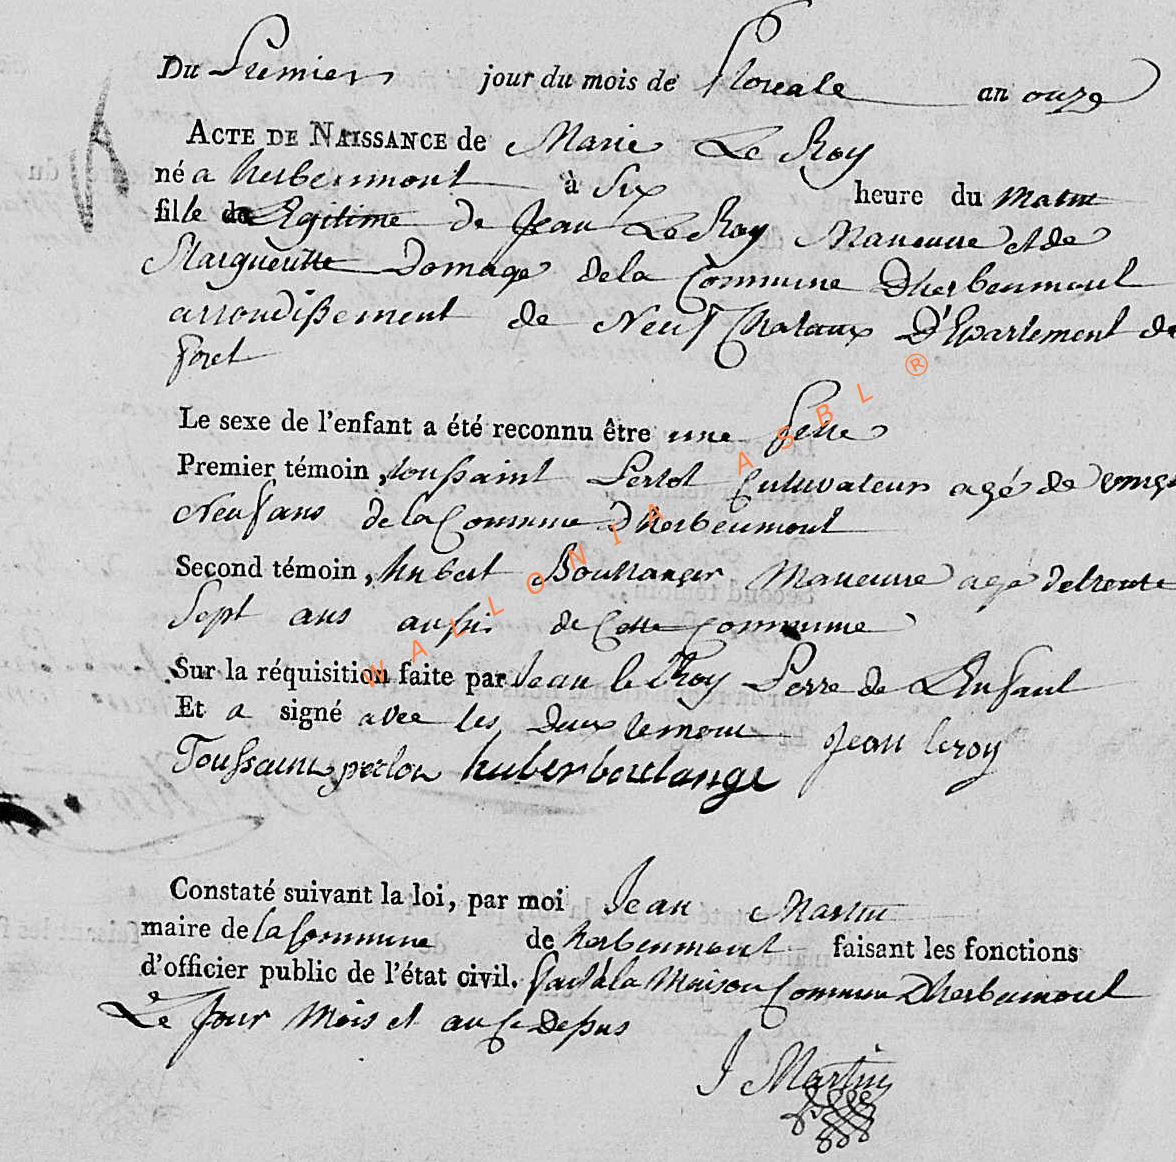 Du Premier jour du mois de Floreale an onze
ACTE DE NAISSANCE de Marie Le Roy
né a herbeumont à Six heure du Matin
fille de Legitime de Jean Le Roy Maneuvre et de
Margueritte Domage de la Commune Dherbeumont
arrondissement de Neuf Chataux D'Epartement de
foret
Le sexe de l'enfant a été reconnu être une fille
Premier témoin, toussaint Perlot Cultivateur agé de vingt
Neuf ans de la Commune Dherbeumont
Second témoin, hubert Boullanger Maneuvre agé de trente
Sept ans aussi de Cette Commune
Sur la réquisition faite par Jean le Roy Perre de L'Enfant
Et a signé avec les deux temoin Jean leroy
Toussaint perlot huber boullange
Constaté suivant la loi, par moi Jean Martin
maire de la Commune de herbeumont faisant les fonctions
d'officier public de l'état civil. fait a la Maison Commune Dherbeumont
Le Jour Mois et an Ce Dessus
J Martin
WALLONIA ASBL ®